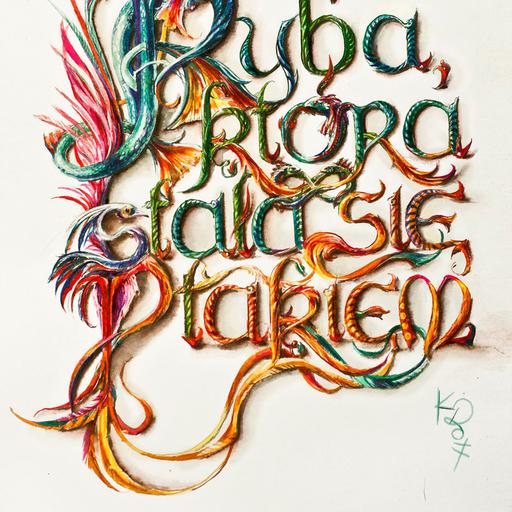 Ryba,
która
stała się
Ptakiem